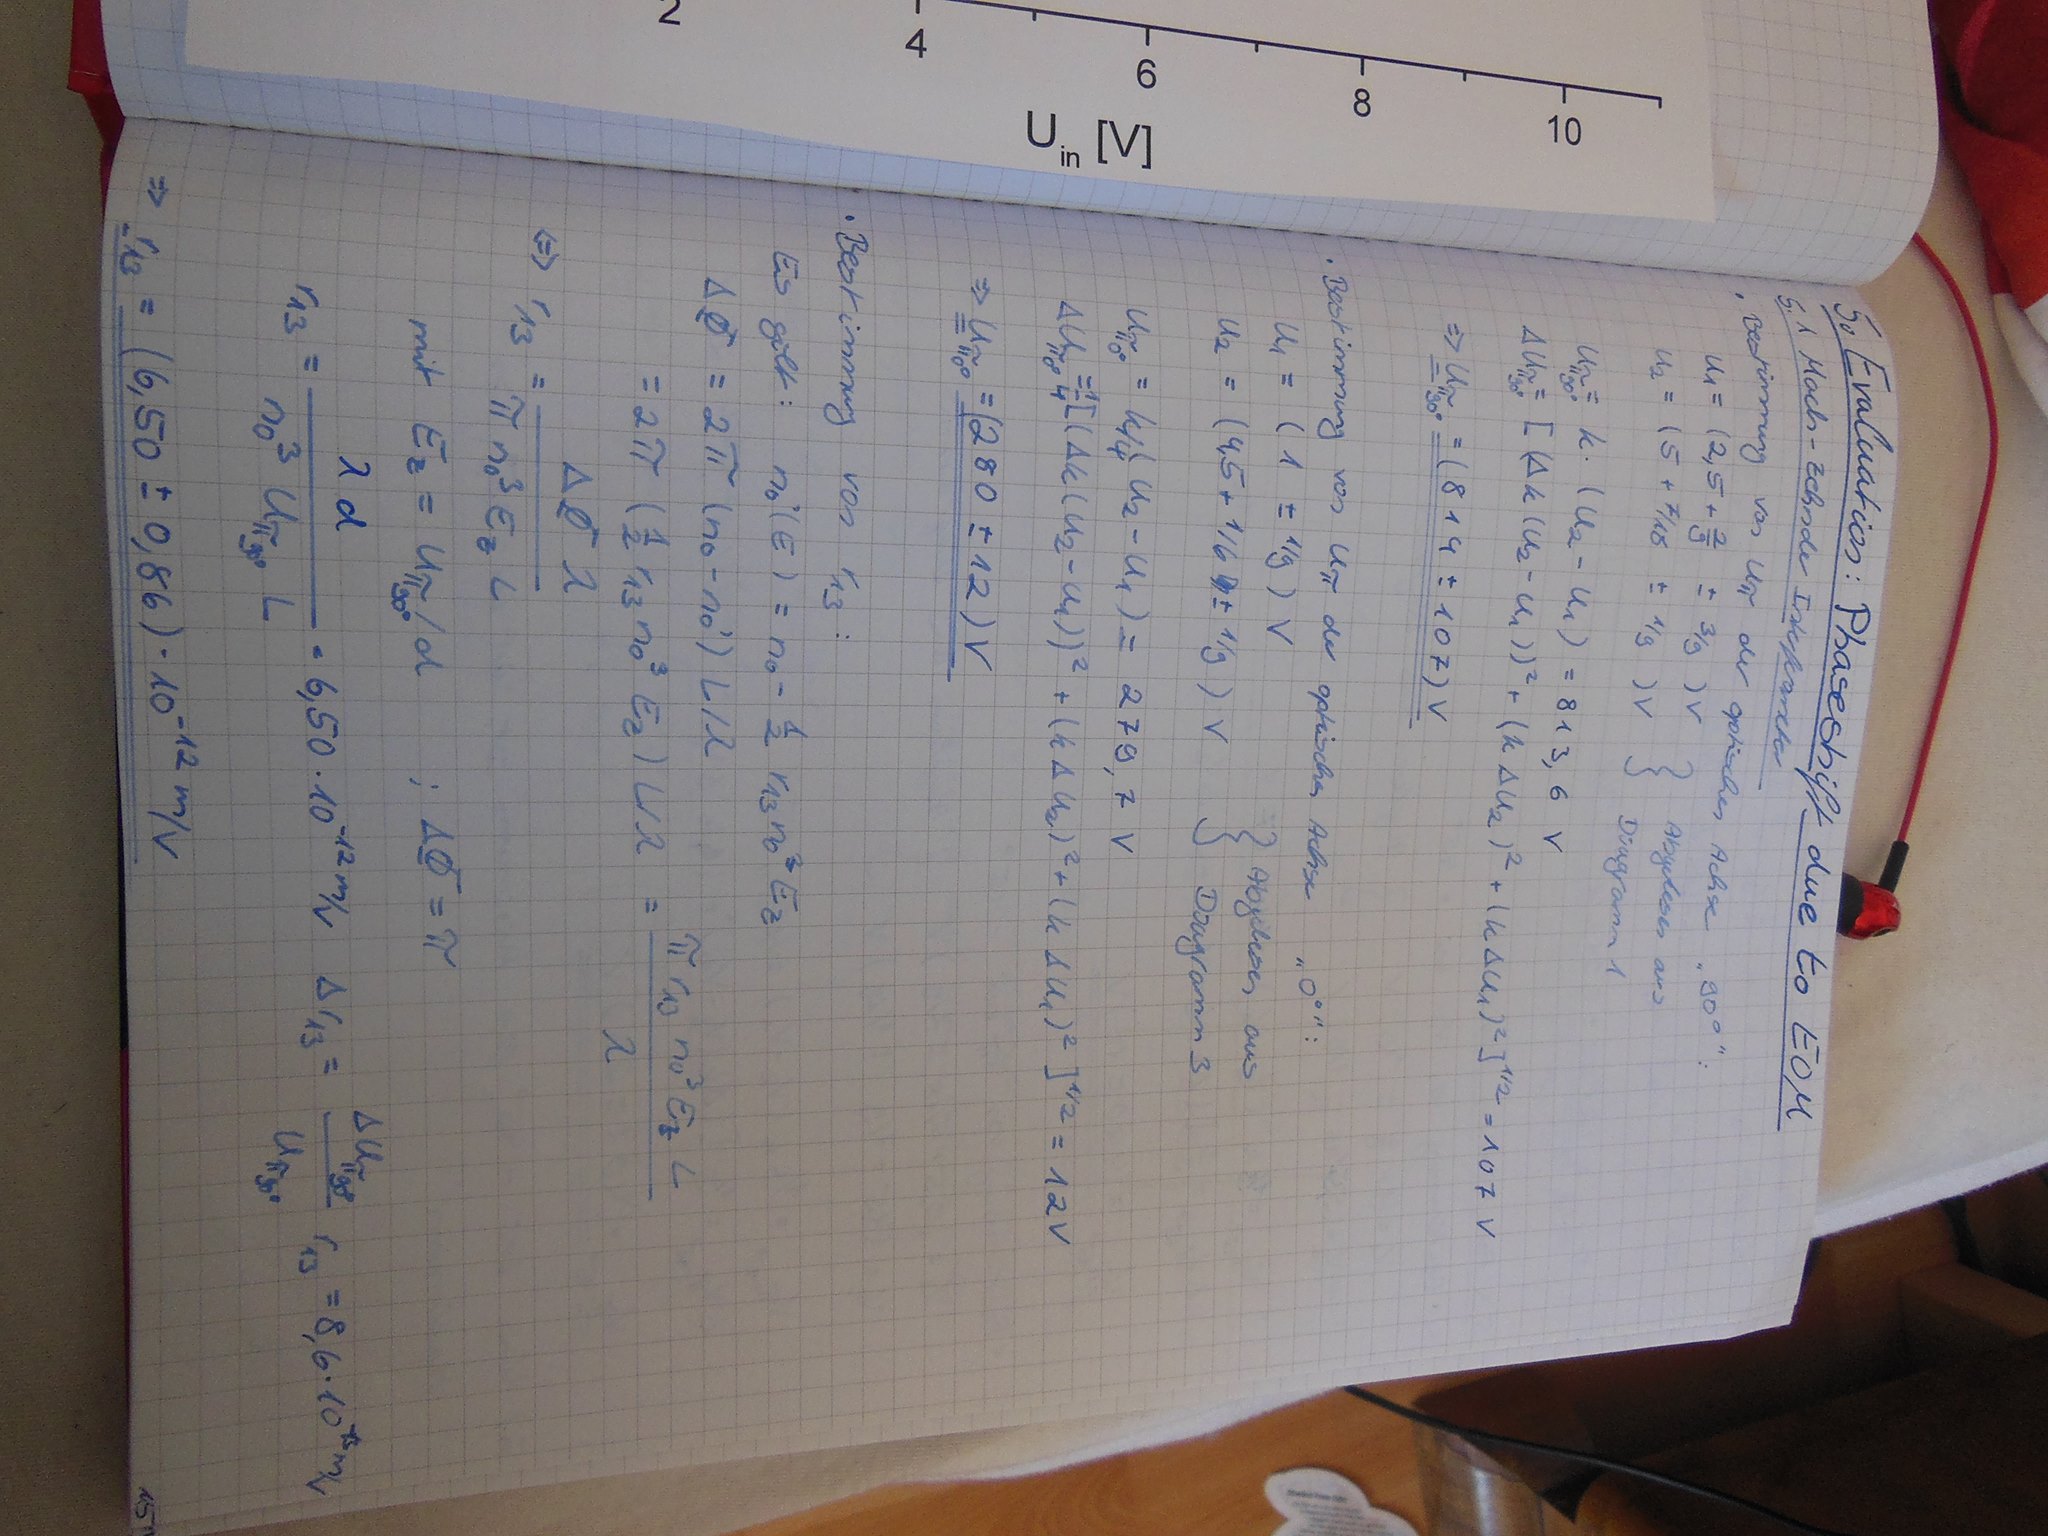 2
4
6
8
10
U_in [V]
5. Evaluation: Phaseshift due to EOM
5.1 Mach-Zehnder Interferometer
· Bestimmung von U_π der optischen Achse „90°":
U₁ = (2,5 + 2/9 ± 3/9) V } Abgelesen aus
U₂ = (5 + 7/18 ± 1/9) V } Diagramm 1
U_π90° = k · (U₂ - U₁) = 813,6 V
ΔU_π90° = [(Δk(U₂ - U₁))² + (kΔU₂)² + (kΔU₁)²]^1/2 = 107 V
⇒ U_π90° = (814 ± 107) V
· Bestimmung von U_π der optischen Achse „0°":
U₁ = (1 ± 1/9) V } Abgelesen aus
U₂ = (4,5 + 1/6 ± 1/9) V } Diagramm 3
U_π0° = k/4 (U₂ - U₁) = 279,7 V
ΔU_π0° = 1/4 [(Δk(U₂ - U₁))² + (kΔU₂)² + (kΔU₁)²]^1/2 = 12 V
⇒ U_π0° = (280 ± 12) V
· Bestimmung von r₁₃:
Es gilt: n₀'(E) = n₀ - 1/2 r₁₃ n₀³ E_z
ΔΦ = 2π (n₀ - n₀') L/λ
= 2π (1/2 r₁₃ n₀³ E_z) L/λ = π r₁₃ n₀³ E_z L / λ
⇔ r₁₃ = ΔΦ λ / π n₀³ E_z L
mit E_z = U_π90° / d ; ΔΦ = π
r₁₃ = λ d / n₀³ U_π90° L = 6,50 · 10⁻¹² m/V Δr₁₃ = ΔU_π90° / U_π90° r₁₃ = 8,6 · 10⁻¹³ m/V
⇒ r₁₃ = (6,50 ± 0,86) · 10⁻¹² m/V